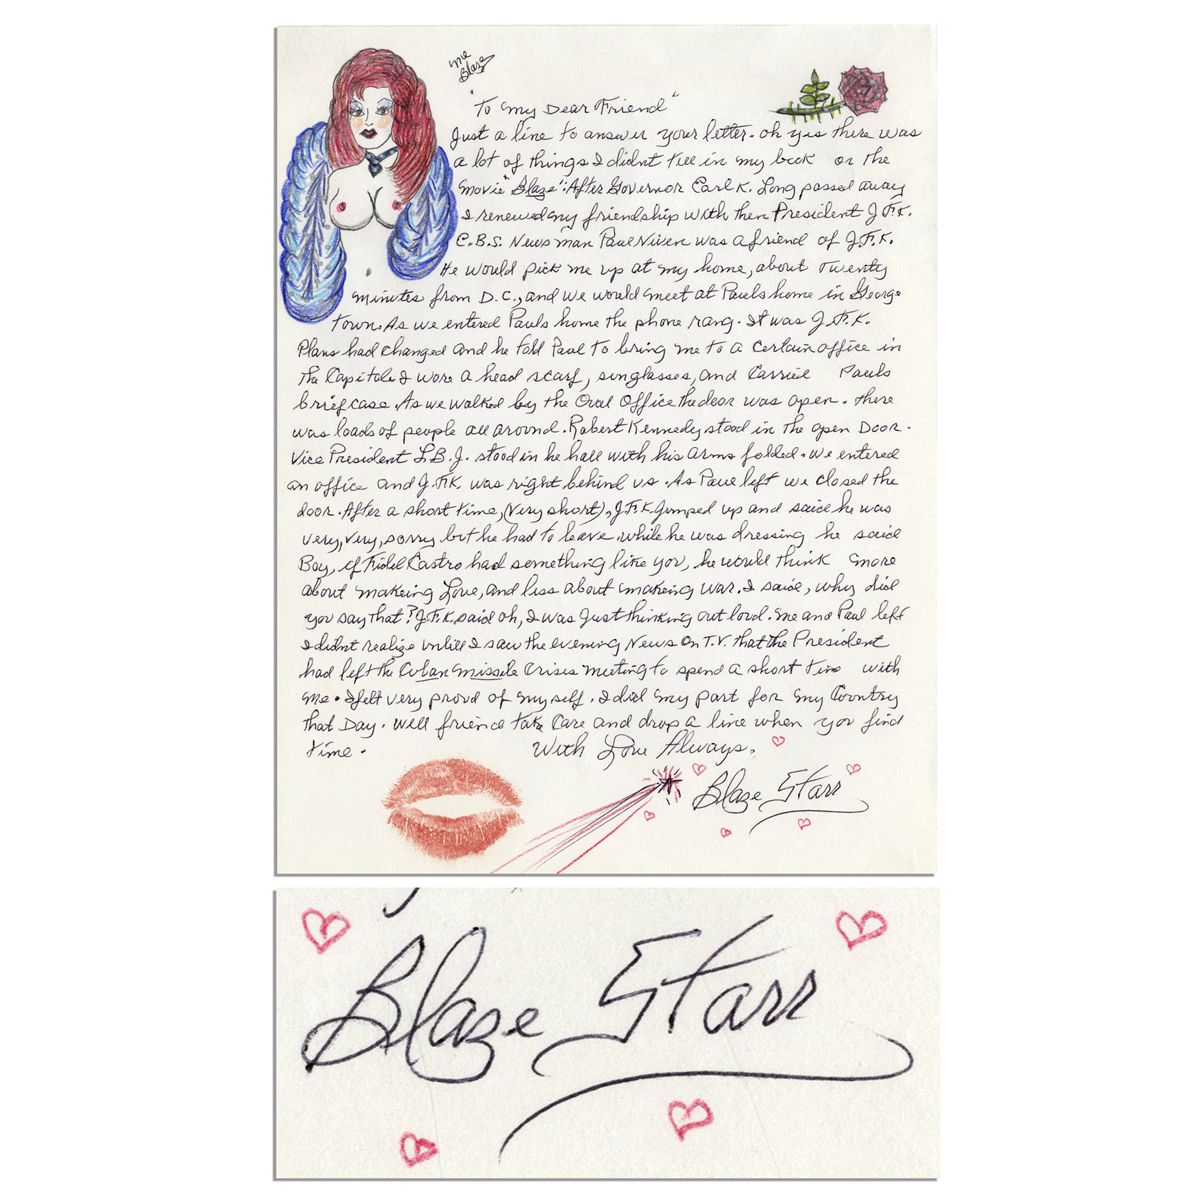 Me
Blaze
"To My Dear Friend"
Just a line to answer your letter. Oh yes there was
a lot of things I didnt tell in my book or the
Movie "Blaze". After Governor Earl K. Long passed away
I renewed my friendship with then President J.F.K.
C.B.S. News man Paul Niven was a friend of J.F.K.
He would pick me up at my home, about Twenty
minutes from D.C., and we would meet at Pauls home in George
Town. As we entered Pauls home the phone rang. It was J.F.K.
Plans had changed and he told Paul to bring me to a certain office in
the Capitole I wore a head scarf, sunglasses, and carried Pauls
briefcase. As we walked by the Oval Office the door was open. there
was loads of people all around. Robert Kennedy stood in the open Door.
Vice President L.B.J. stood in he hall with his arms folded. We entered
an office and J.F.K. was right behind us. As Paul left we closed the
door. After a short time, (very short), J.F.K. Jumped up and said he was
very, very, sorry but he had to leave while he was dressing he said
Boy, if Fidel Castro had something like you, he would think more
about makeing Love, and less about makeing war. I said, why did
you say that? J.F.K. said oh, I was Just thinking out loud. Me and Paul left
I didnt realize untill I saw the evening News on T.V. that the President
had left the Cuban missile Crisis meeting to spend a short time with
me. I felt very proud of myself. I did my part for my Country
that Day. Well friend take Care and drop a line when you find
time. With Love Always,
Blaze Starr
Blaze Starr